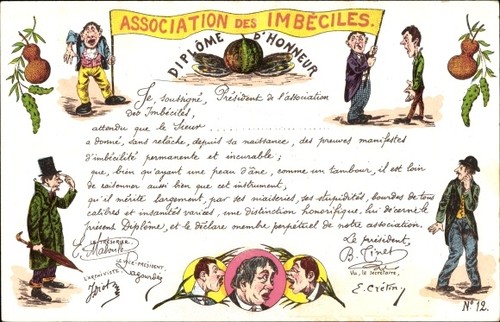 ASSOCIATION DES IMBÉCILES.
DIPLÔME D'HONNEUR
Je, soussigné, Président de l'association
des Imbéciles,
attendu que le Sieur ..............................
a donné, sans relâche, depuis sa naissance, des preuves manifestes
d'imbécilité permanente et incurable;
que, bien qu'ayant une peau d'âne, comme un tambour, il est loin
de raisonner aussi bien que cet instrument,
qu'il mérite largement, par ses niaiseries, ses stupidités, bourdes de tous
calibres et insanités variées, une distinction honorifique, lui décerne le
présent Diplôme, et le déclare membre perpétuel de notre association.
LE TRÉSORIER,
LE VICE-PRÉSIDENT,
L'ARCHIVISTE
Idiot
Le président,
B. Tinet
Vu, le Secrétaire,
E. Crétin
N° 12.